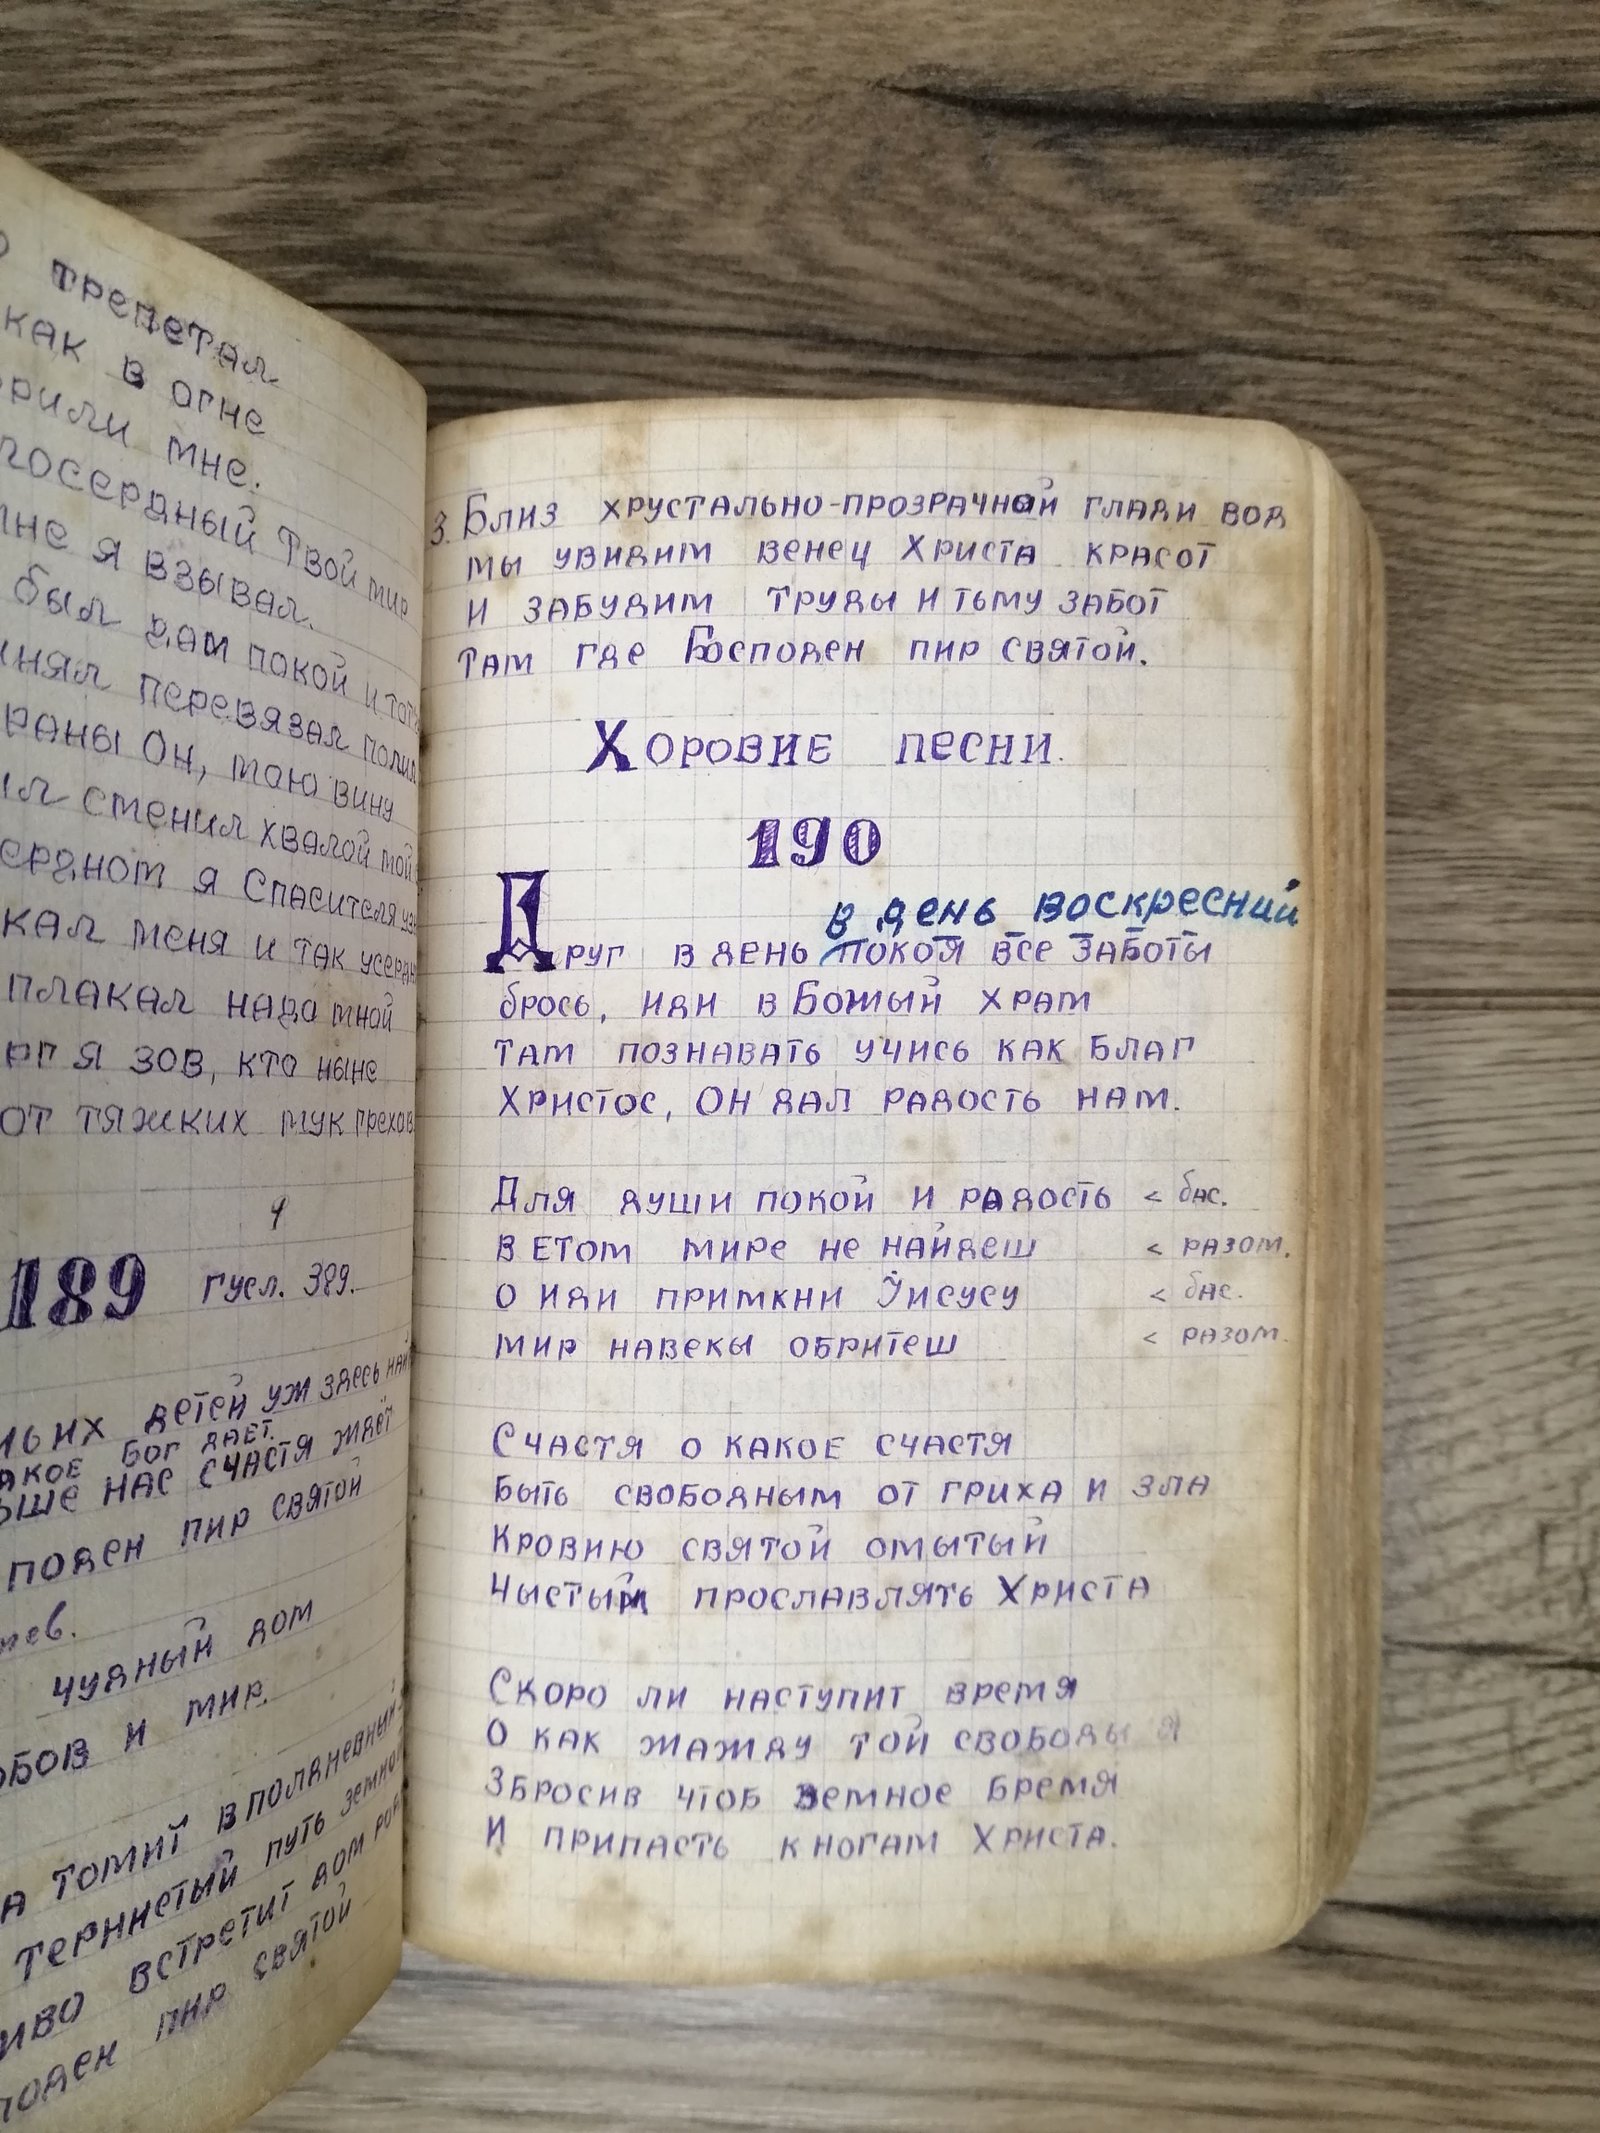 трепетал
как в огне
мне.
Твой мир
мне я взывал.
был дам покой и
перевязал
раны Он, мою вину
сменил хвалой мой
я Спасителя
меня и так
плакал надо мной
я зов, кто ныне
от тяжких мук грехов
189 Гусл. 389.
их детей уж здесь
Бог дает.
нас счастя ждёт
пир святой
чудный дом
и мир.
томит в полдневный
тернистый путь
встретит дом
пир святой
3. Близ хрустально-прозрачной глади вод
мы увидим венец Христа красот
и забудим труды и тьму забот
там где Господен пир святой.
Хоровие песни.
190
в день воскресний
Друг в день покоя все заботы
брось, иди в Божый храм
там познавать учись как благ
Христос, Он дал радость нам.
Для души покой и радость < бас.
в етом мире не найдеш < разом.
о иди примкни Йисусу < бас.
мир навекы обритеш < разом.
Счастя о какое счастя
быть свободным от гриха и зла
Кровию святой омытый
Чыстым прославлять Христа
Скоро ли наступит время
О как жажду той свободы я
Збросив чтоб земное бремя
И припасть к ногам Христа.